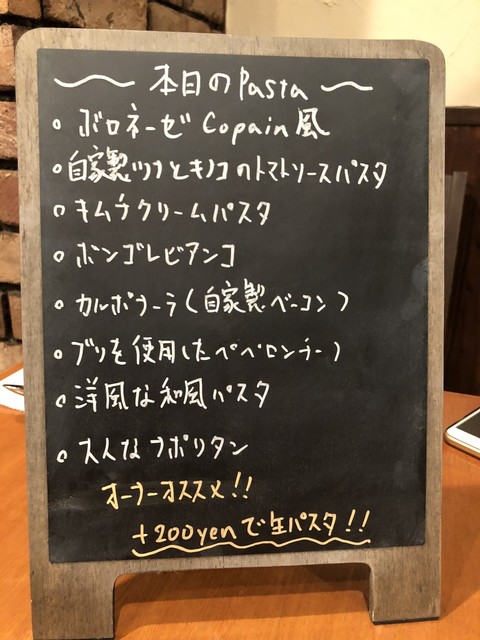 本日のPasta
ボロネーゼ Copain風
自家製ツナとキノコのトマトソースパスタ
キムチクリームパスタ
ボンゴレビアンコ
カルボナーラ(自家製ベーコン)
ブリを使用したペペロンチーノ
洋風な和風パスタ
大人なナポリタン
オーナーオススメ!!
+200yenで生パスタ!!